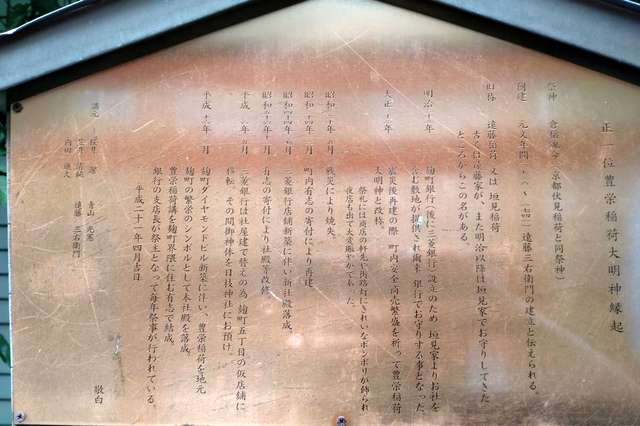 正一位豊栄稲荷大明神縁起
祭神 倉稲魂命(京都伏見稲荷と同祭神)
創建 元文年間 遠藤三右衛門の建立と伝えられる。
旧称 遠藤稲荷 又は 垣見稲荷
古くは遠藤家が、また明治以降は垣見家でお守りしてきた
ところからこの名がある。
明治 年 麹町銀行(後に三菱銀行)設立のため 垣見家よりお社を
含む敷地が提供され爾来 銀行でお守りする事となった
大正 年 震災後再建の際 町内安全商売繁盛を祈って豊栄稲荷
大明神と改称。
祭礼には商店の軒先や街路灯にきれいなボンボリが飾られ
夜店も出て大変賑やかであった。
昭和 年 月 戦災により焼失。
昭和 年 月 町内有志の寄付により再建。
昭和 年 月 三菱銀行店舗新築に伴い新社殿落成。
昭和 年 月 有志の寄付により社殿等改修。
平成 年 月 三菱銀行は社屋建て替えの為 麹町五丁目の仮店舗に
移転、その間御神体を日枝神社にお預け。
平成十 年 月 麹町ダイヤモンドビル新築に伴い、豊栄稲荷を地元
麹町の繁栄のシンボルとして本社殿を落成。
豊栄稲荷講を麹町界隈に住む有志で結成。
銀行の支店長が祭主となって毎年祭事が行われている。
平成二十一年四月吉日
敬白
講元
青山
遠藤 三右衛門
内田